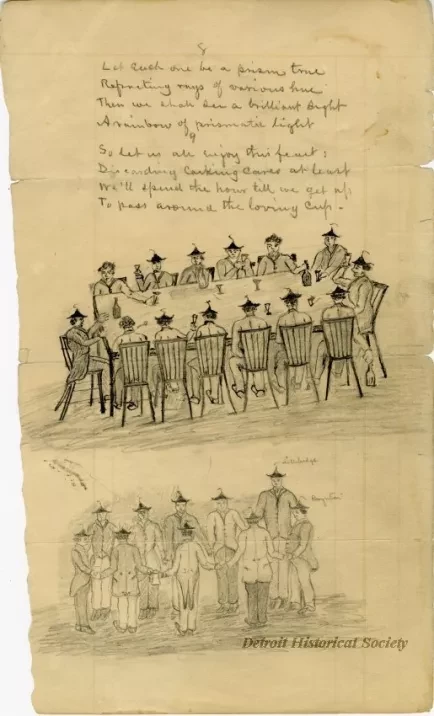 8
Let each one be a prism true
Refracting rays of various hue
Then we shall see a brilliant sight
A rainbow of prismatic light
9
So let us all enjoy this feast;
Discarding carking cares at least
We'll spend the hour till we get up
To pass around the loving cup.
Detroit Historical Society